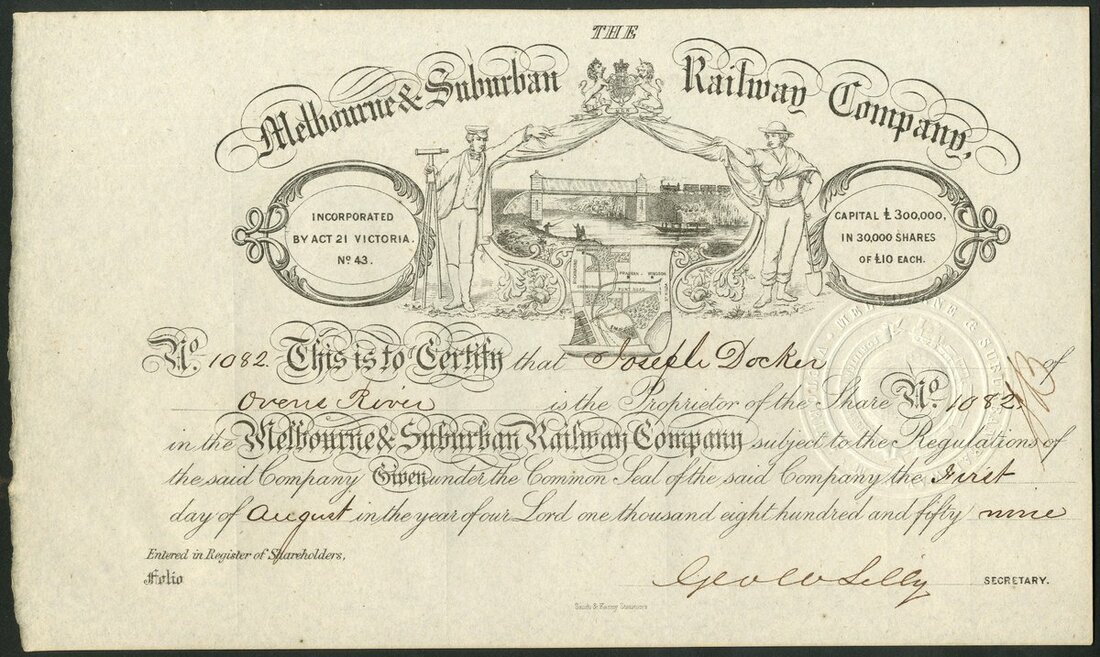 THE
Melbourne & Suburban Railway Company,
INCORPORATED
BY ACT 21 VICTORIA.
No 43.
CAPITAL £300,000,
IN 30,000 SHARES
OF £10 EACH.
PRAHRAN WINDSOR
No. 1082 This is to Certify that Joseph Docker of
Ovens River is the Proprietor of the Share No. 1082
in the Melbourne & Suburban Railway Company subject to the Regulations of
the said Company Given under the Common Seal of the said Company the First
day of August in the year of our Lord one thousand eight hundred and fifty nine
Entered in Register of Shareholders,
Folio
Geo W Lilly SECRETARY.
Sands & Kenny